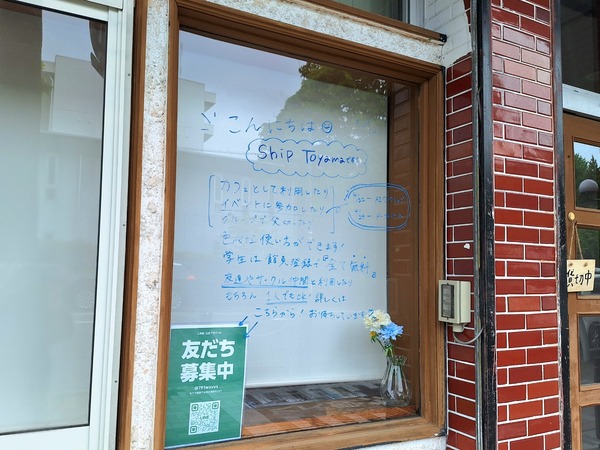 こんにちは
Ship Toyamaです
カフェとして利用したり
イベントに参加したり
色々な使い方ができます!
学生は館員登録で全て無料
友達やサークル仲間と利用したり
もちろん 1人でもOK! 詳しくは
こちらから! お待ちしています
友だち
募集中
貸切中